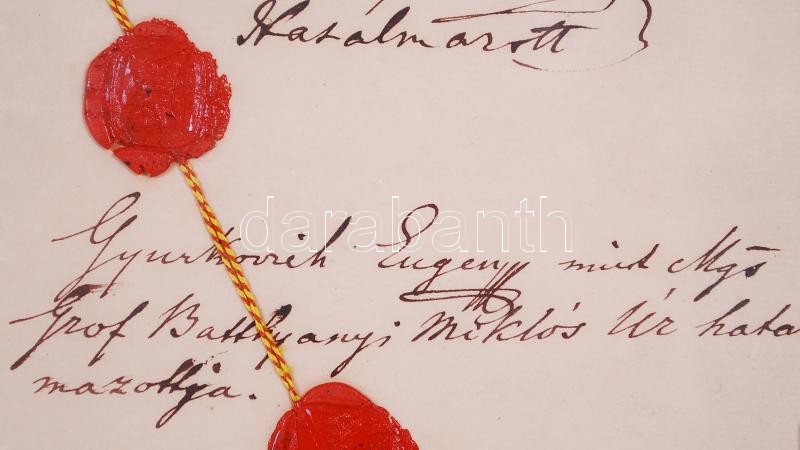 Hatálmazott
Gyurkovich Eugeny mint Mgs
Grof Batthyanyi Miklós Úr hata
mazottja.
darabanth